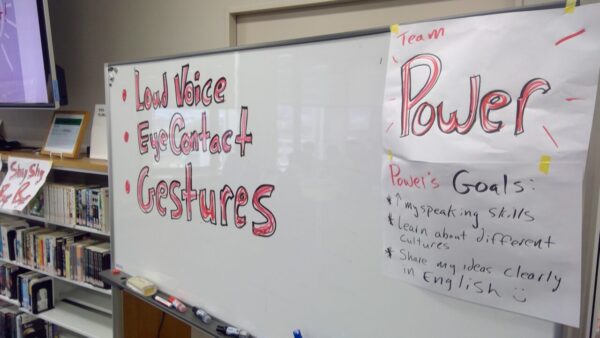 • Loud Voice
• Eye Contact
• Gestures
Shy Shy
Bye
Bye
Team
Power
Power's Goals:
* ↑ my speaking skills
* Learn about different
cultures
* Share my ideas clearly
in English ☺